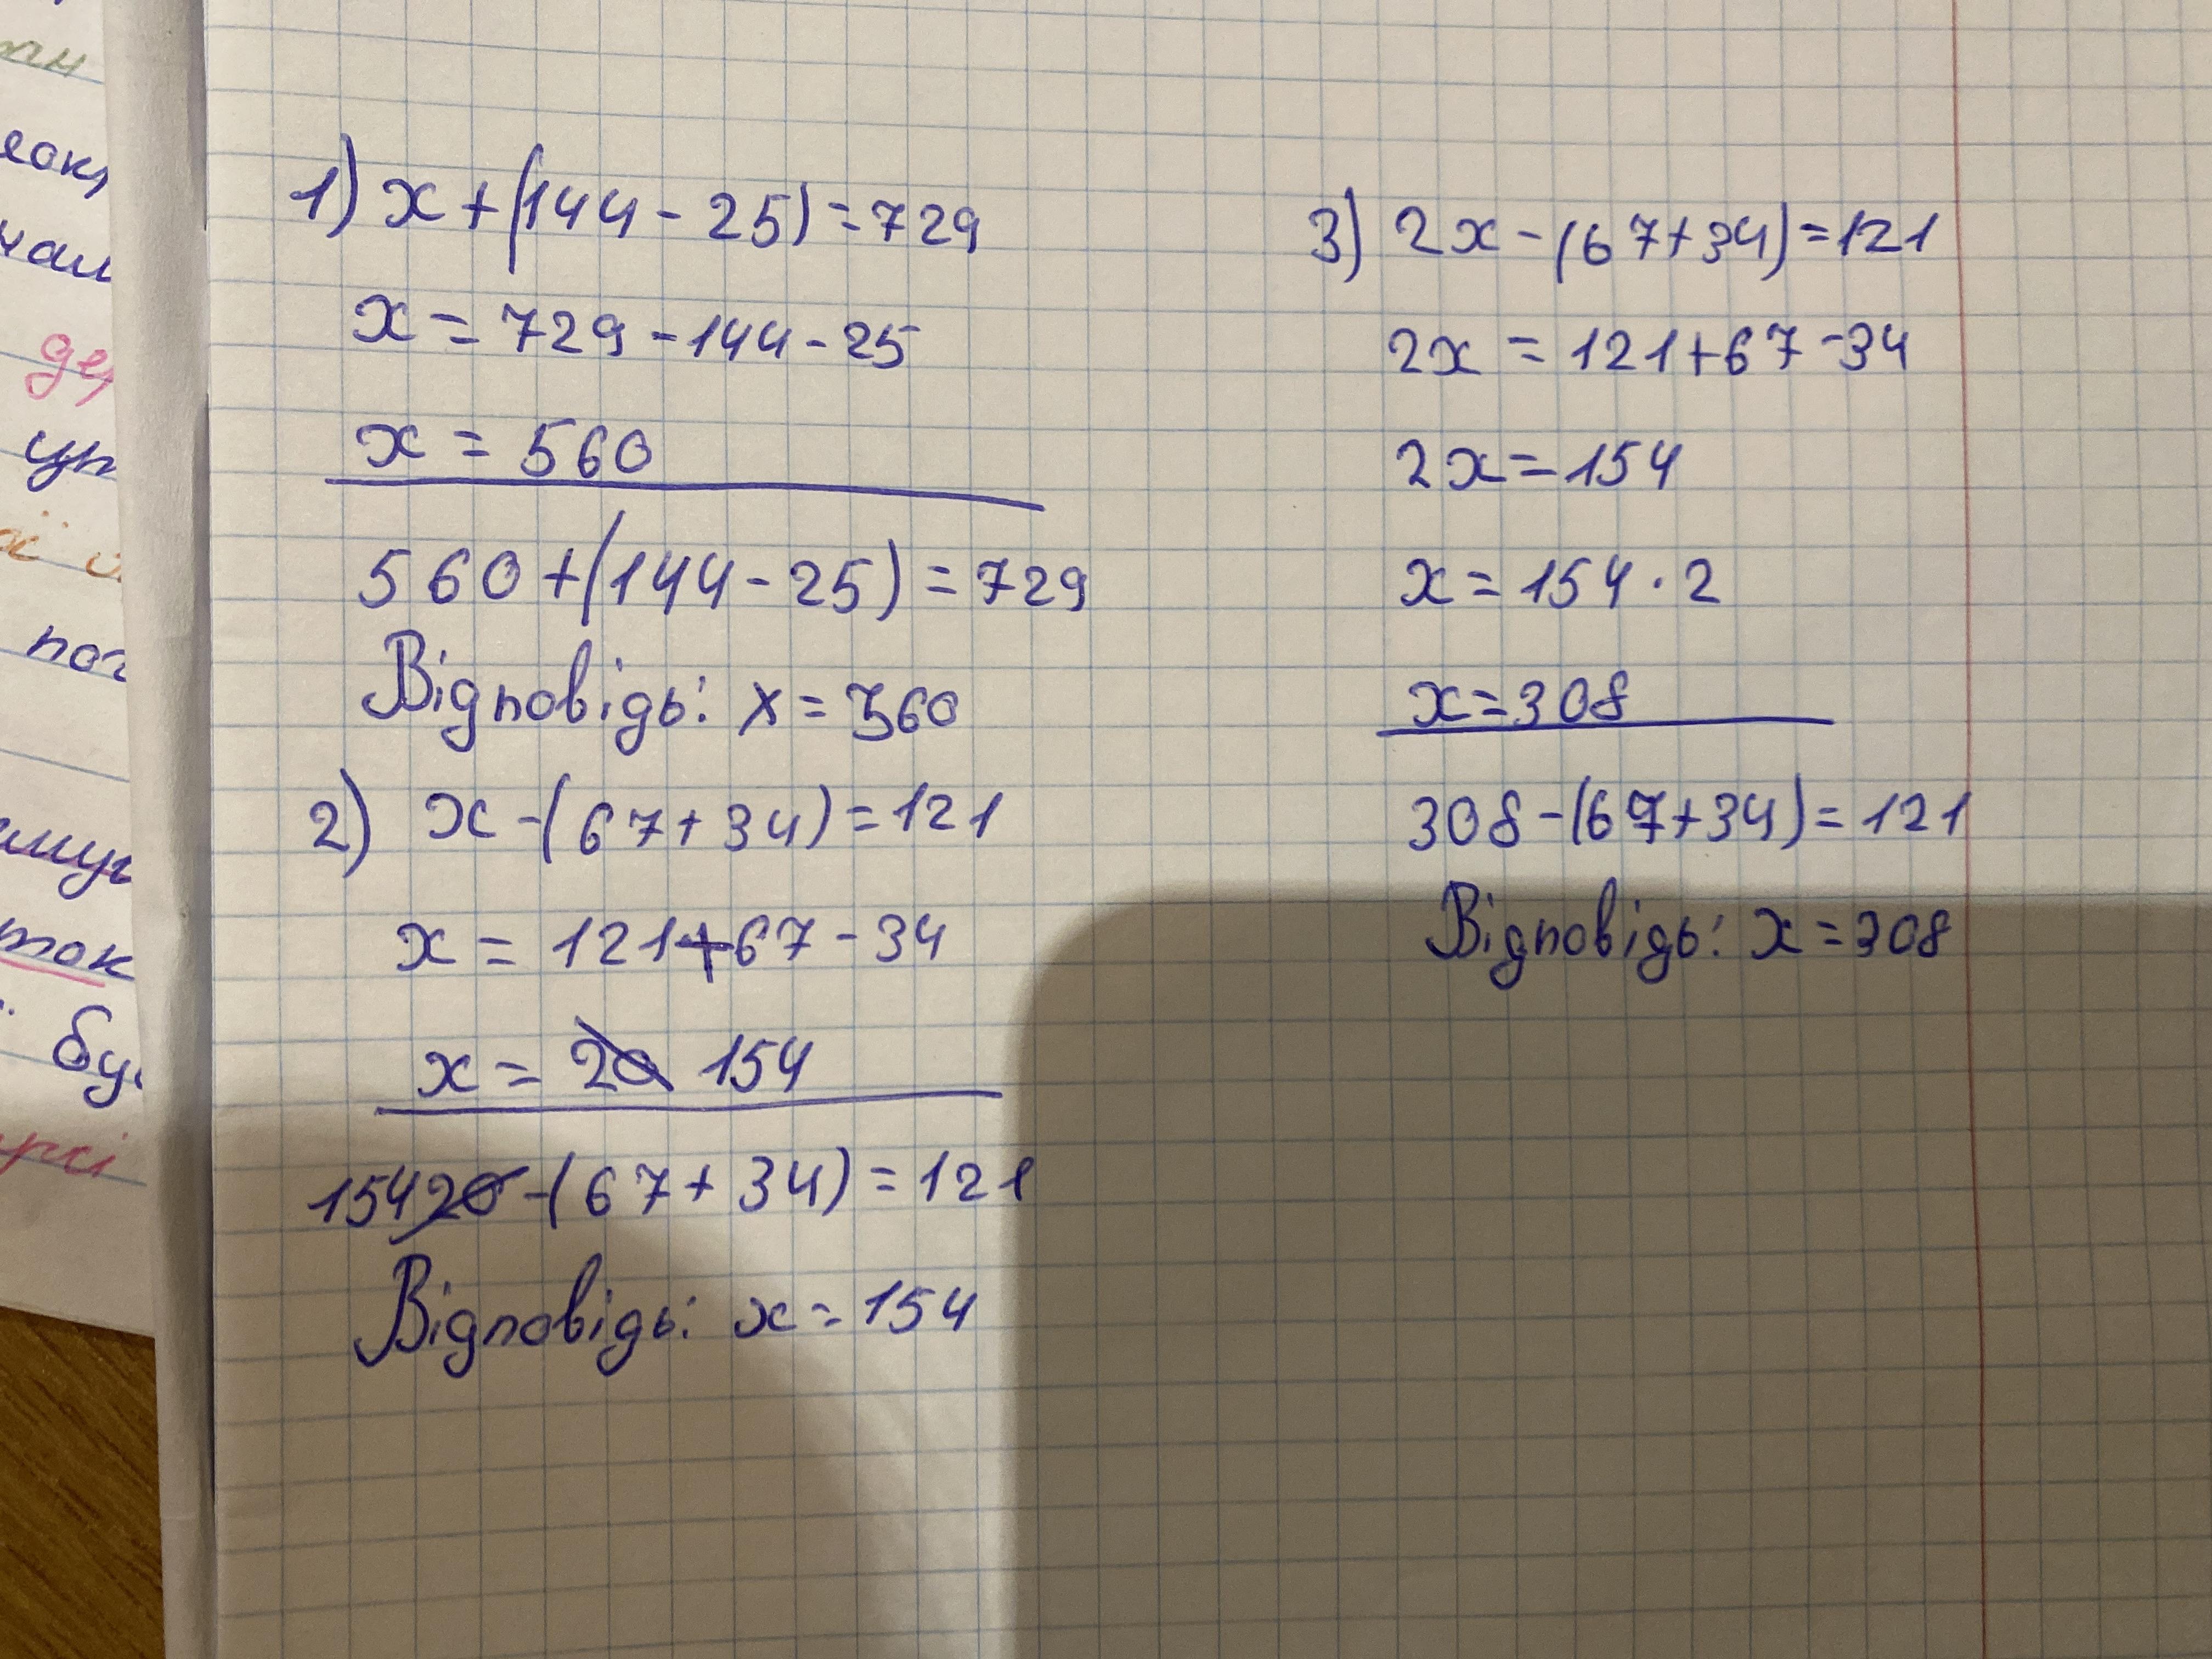 1) x + (144 - 25) = 729
x = 729 - 144 - 25
x = 560
560 + (144 - 25) = 729
Відповідь: x = 560
2) x - (67 + 34) = 121
x = 121 + 67 - 34
x = 20 154
154 20 - (67 + 34) = 121
Відповідь: x = 154
3) 2x - (67 + 34) = 121
2x = 121 + 67 - 34
2x = 154
x = 154 · 2
x = 308
308 - (67 + 34) = 121
Відповідь: x = 308